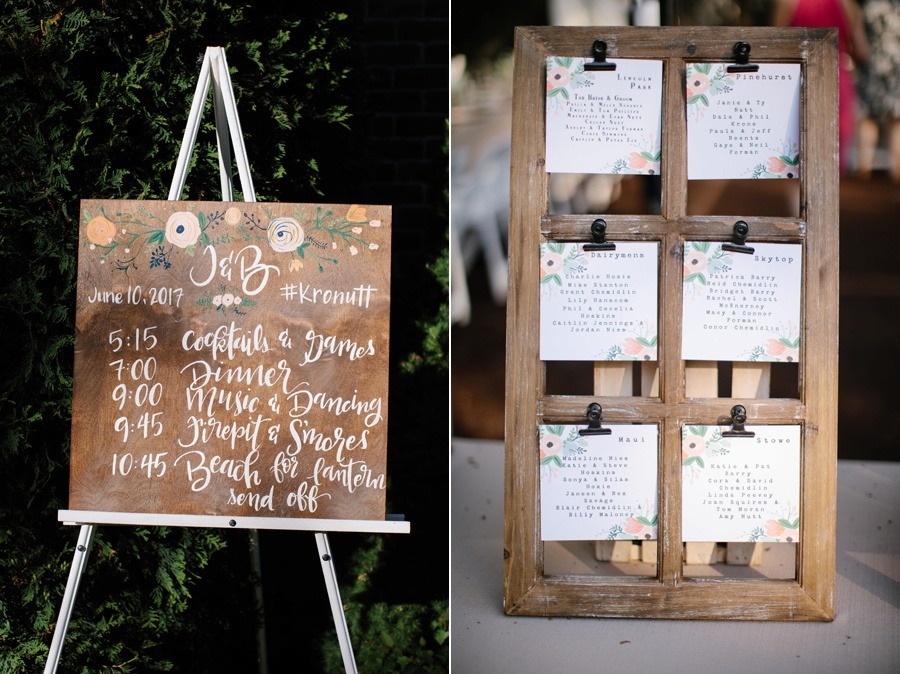 J & B
June 10, 2017
#Kronutt
5:15 Cocktails & Games
7:00 Dinner
9:00 Music & Dancing
9:45 Firepit & S'mores
10:45 Beach for lantern
send off
Lincoln
Park
The Bride & Groom
Emily & Tom
Pinehurst
Janie & Ty
Nutt
Dala & Phil
Krone
Paula & Jeff
Beenta
Gaye & Neil
Forman
Dairymens
Charlie Hoxie
Mike Stanton
Grant Chemidlin
Lily Hanscom
Phil & Cecelia
Hoskins
Caitlin Jennings &
Jordan Nies
Skytop
Patrick Barry
Reid Chemidlin
Bridget Barry
Rachel & Scott
McEnerney
Macy & Conor
Forman
Conor Chemidlin
Maui
Madeline Nies
Katie & Steve
Hoskins
Sonya & Silas
Hoxie
Jansen & Nez
Savage
Blair Chemidlin &
Billy Maloney
Stowe
Katie & Pat
Barry
Cora & David
Chemidlin
Linda Peevey
Joan Squires &
Tom Moran
Amy Nutt